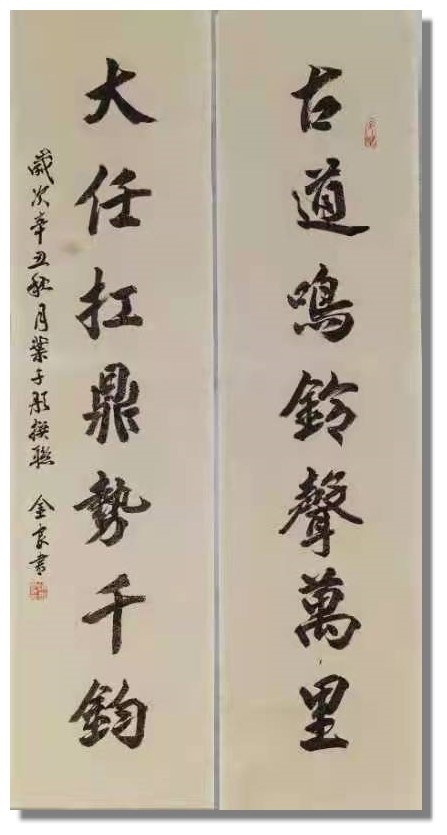 古道鳴鈴聲萬里
大任扛鼎勢千鈞
歲次辛丑秋月葉子彤撰聯 金良書